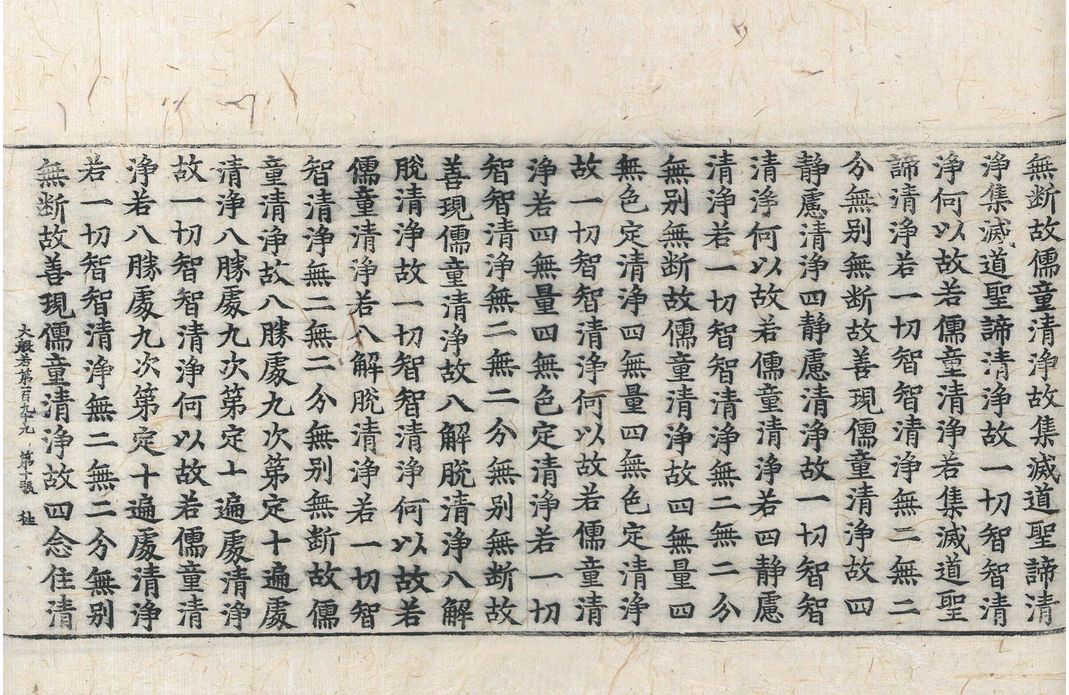 無断故儒童清浄故集滅道聖諦清
浄集滅道聖諦清浄故一切智智清
浄何以故若儒童清浄若集滅道聖
諦清浄若一切智智清浄無二無二
分無別無断故善現儒童清浄故四
静慮清浄四静慮清浄故一切智智
清浄何以故若儒童清浄若四静慮
清浄若一切智智清浄無二無二分
無別無断故儒童清浄故四無量四
無色定清浄四無量四無色定清浄
故一切智智清浄何以故若儒童清
浄若四無量四無色定清浄若一切
智智清浄無二無二分無別無断故
善現儒童清浄故八解脱清浄八解
脱清浄故一切智智清浄何以故若
儒童清浄若八解脱清浄若一切智
智清浄無二無二分無別無断故儒
童清浄故八勝處九次第定十遍處
清浄八勝處九次第定十遍處清浄
故一切智智清浄何以故若儒童清
浄若八勝處九次第定十遍處清浄
若一切智智清浄無二無二分無別
無断故善現儒童清浄故四念住清
大般若第百九十九 第